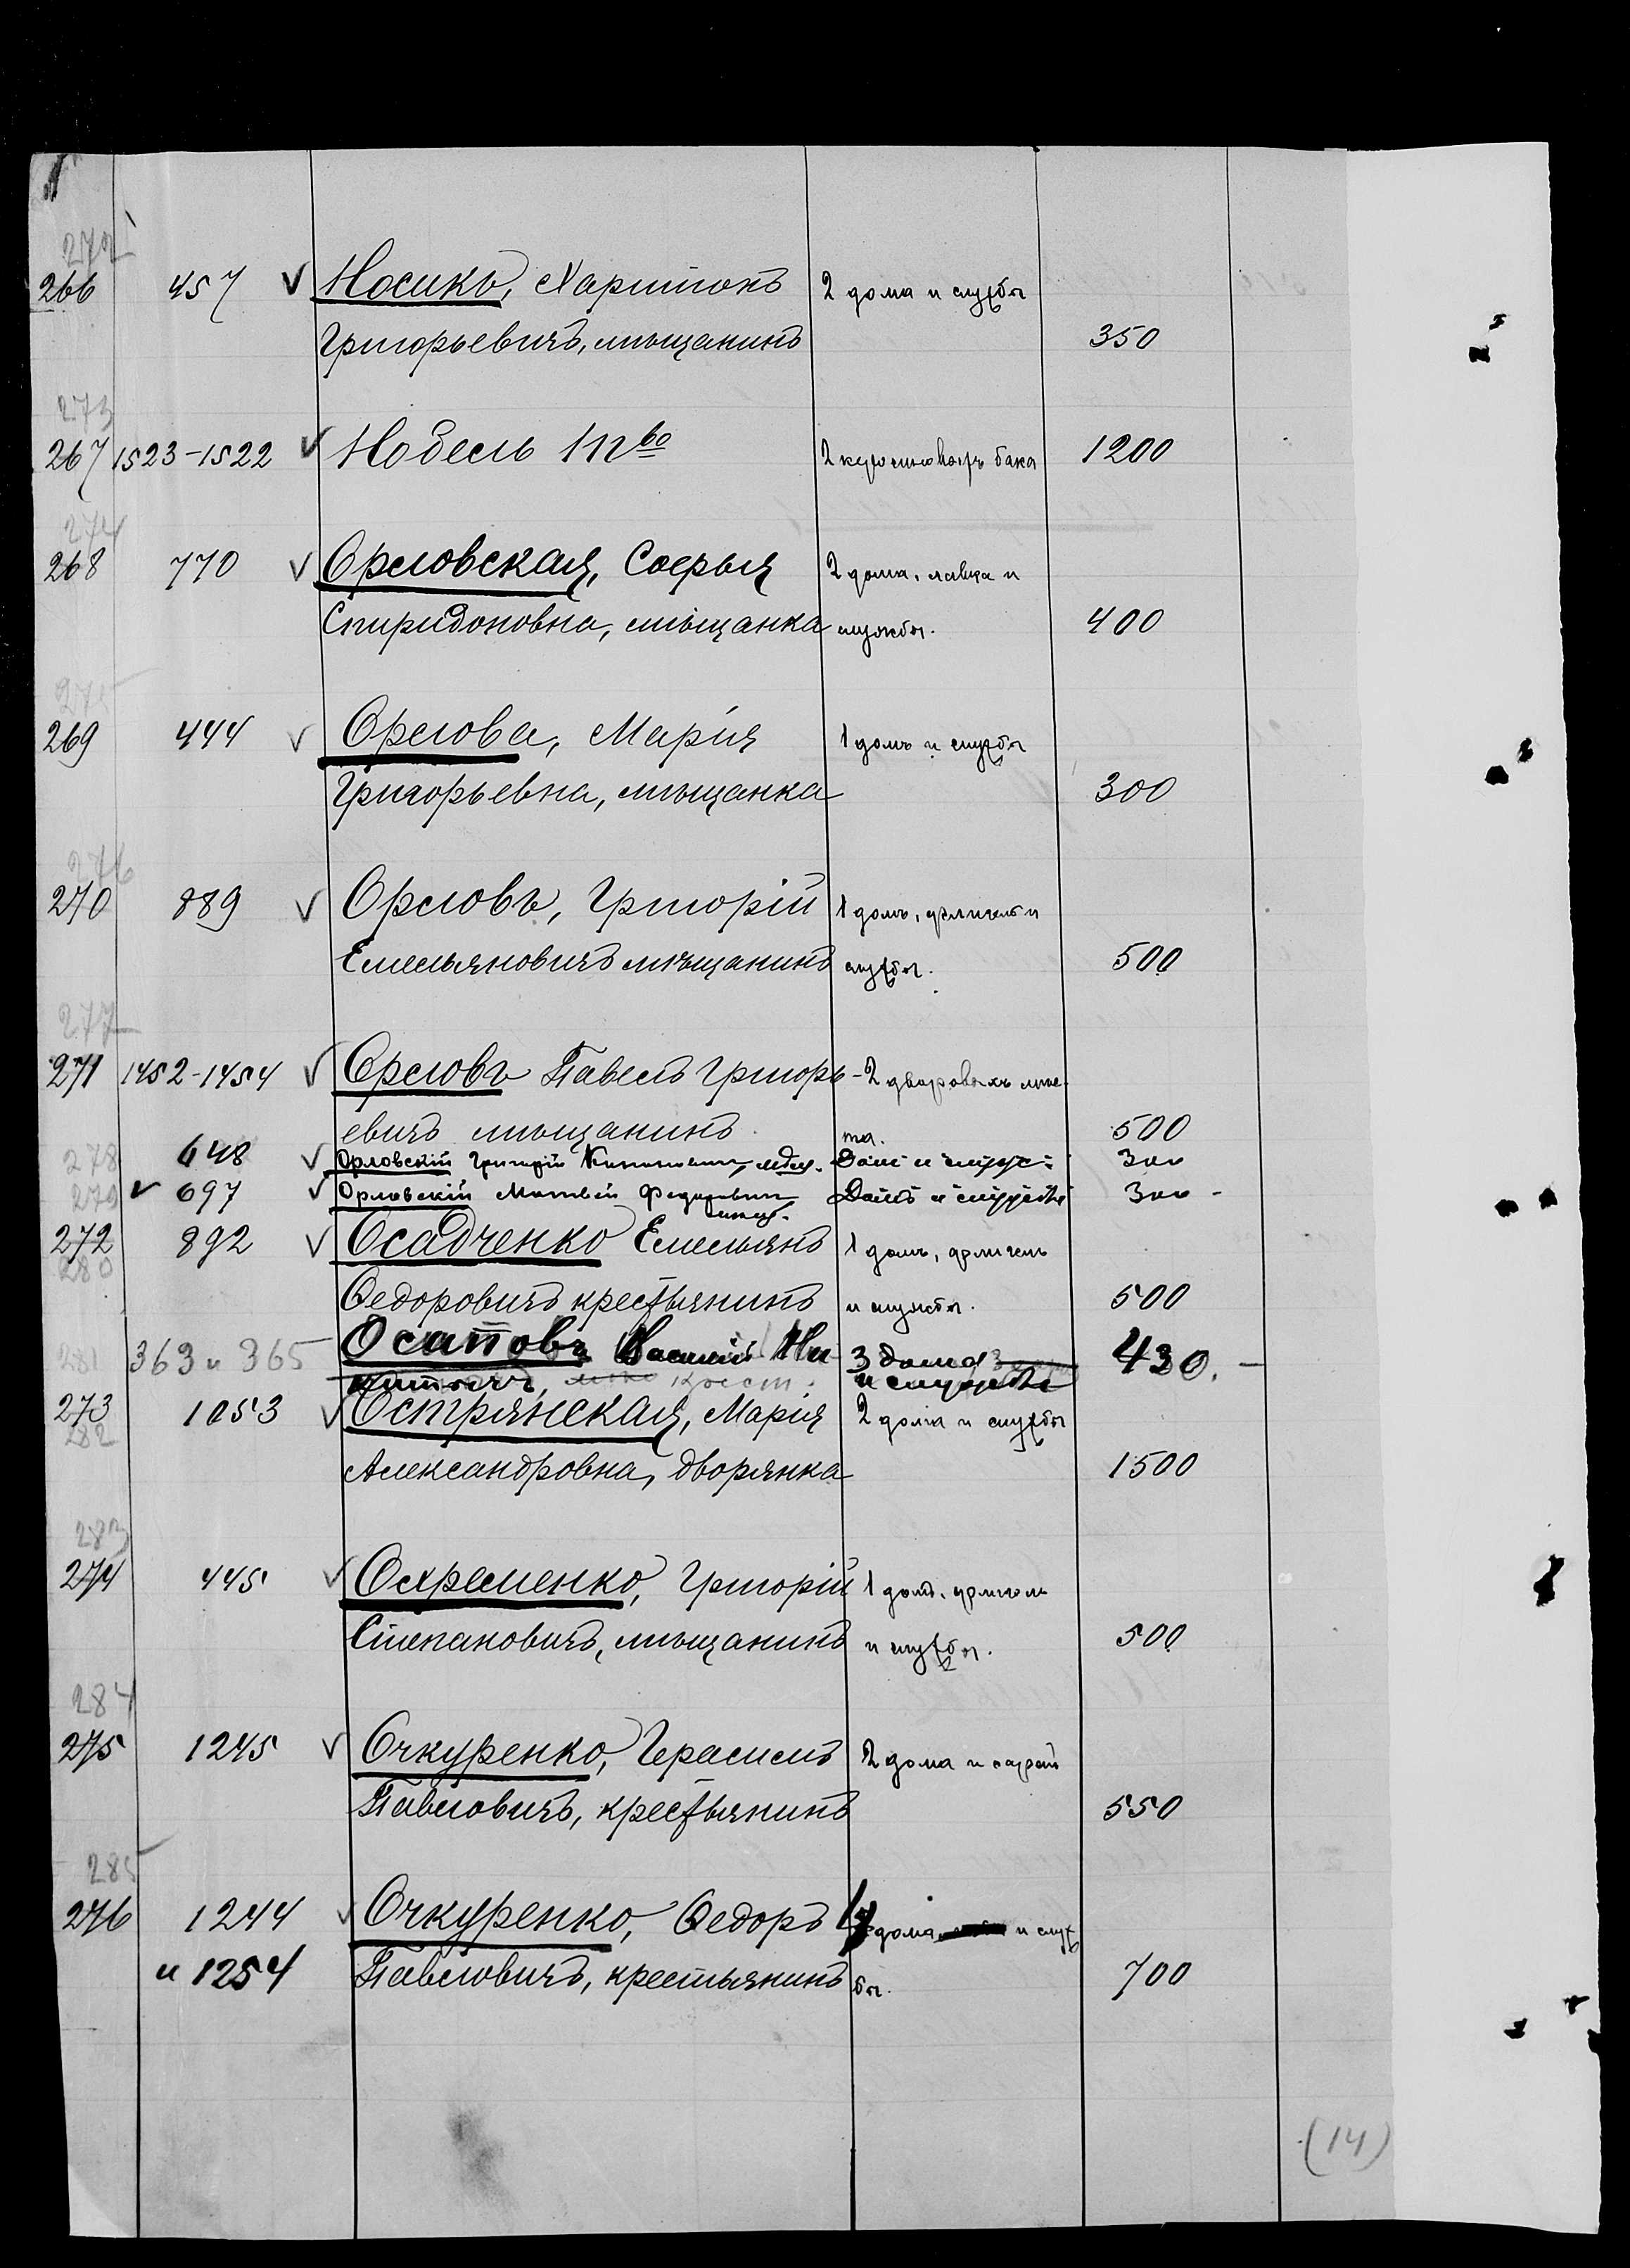 272
266 457 Носико, Харитонъ 2 дома и службы
Григорьевичъ, мѣщанинъ 350
273
267 1523-1522 Нобель 2 керосиновыхъ бака 1200
274
268 770 Орловская, Софья 2 дома, лавка и
Спиридоновна, мѣщанка службы. 400
275
269 444 Орлова, Марія 1 домъ и службы
Григорьевна, мѣщанка 300
276
270 889 Орловъ, Григорій 1 домъ, флигель и
Емельяновичъ мѣщанинъ службы. 500
277
271 1452-1454 Орловъ Павелъ Григорь- 2 дворовыхъ мѣс-
евичъ мѣщанинъ. та. 500
278 648 Орловскій Григорій Домъ и служ: 300
279 697 Орловскій Матвей Федоровичъ Домъ и службы 300 -
272 892 Осадченко Емельянъ 1 домъ, флигель
280
Ѳедоровичъ крестьянинъ и службы. 500
281 363 и 365 Осатовъ Василій Ни- 3 дома 430. -
китичъ, крест. и службы
273 1053 Острянская, Марія 2 дома и службы
282
Александровна, дворянка 1500
283
274 445 Охременко, Григорій 1 домъ, флигель
Степановичъ, мѣщанинъ и службы. 500
284
275 1245 Очкуренко, Герасимъ 2 дома и сарай
Павловичъ, крестьянинъ 550
285
276 1244 Очкуренко, Ѳедоръ дома и служ
и 1254 Павловичъ, крестьянинъ бы. 700
(14)